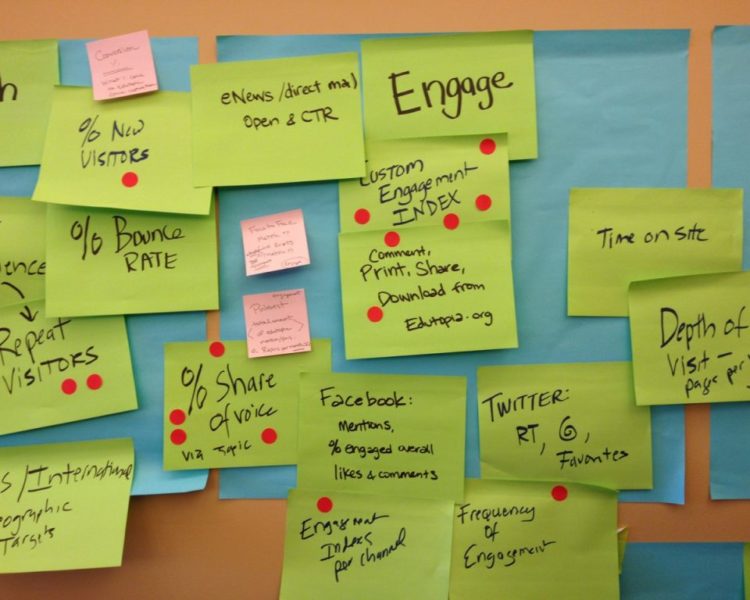 h
Conversion
% New
VISITORS
eNews/direct mail
Open & CTR
Engage
CUSTOM
Engagement
INDEX
% Bounce
RATE
ence
Repeat
VISITORS
Comment,
Print, Share,
Download from
Edutopia.org
Time on Site
Depth of
Visit –
page per
% Share
of voice
via Topic
Facebook:
Mentions,
% engaged overall
likes & comments
TWITTER:
RT, @,
Favorites
s/International
eographic
Targets
Engagement
Index
per channel
Frequency
of
Engagement